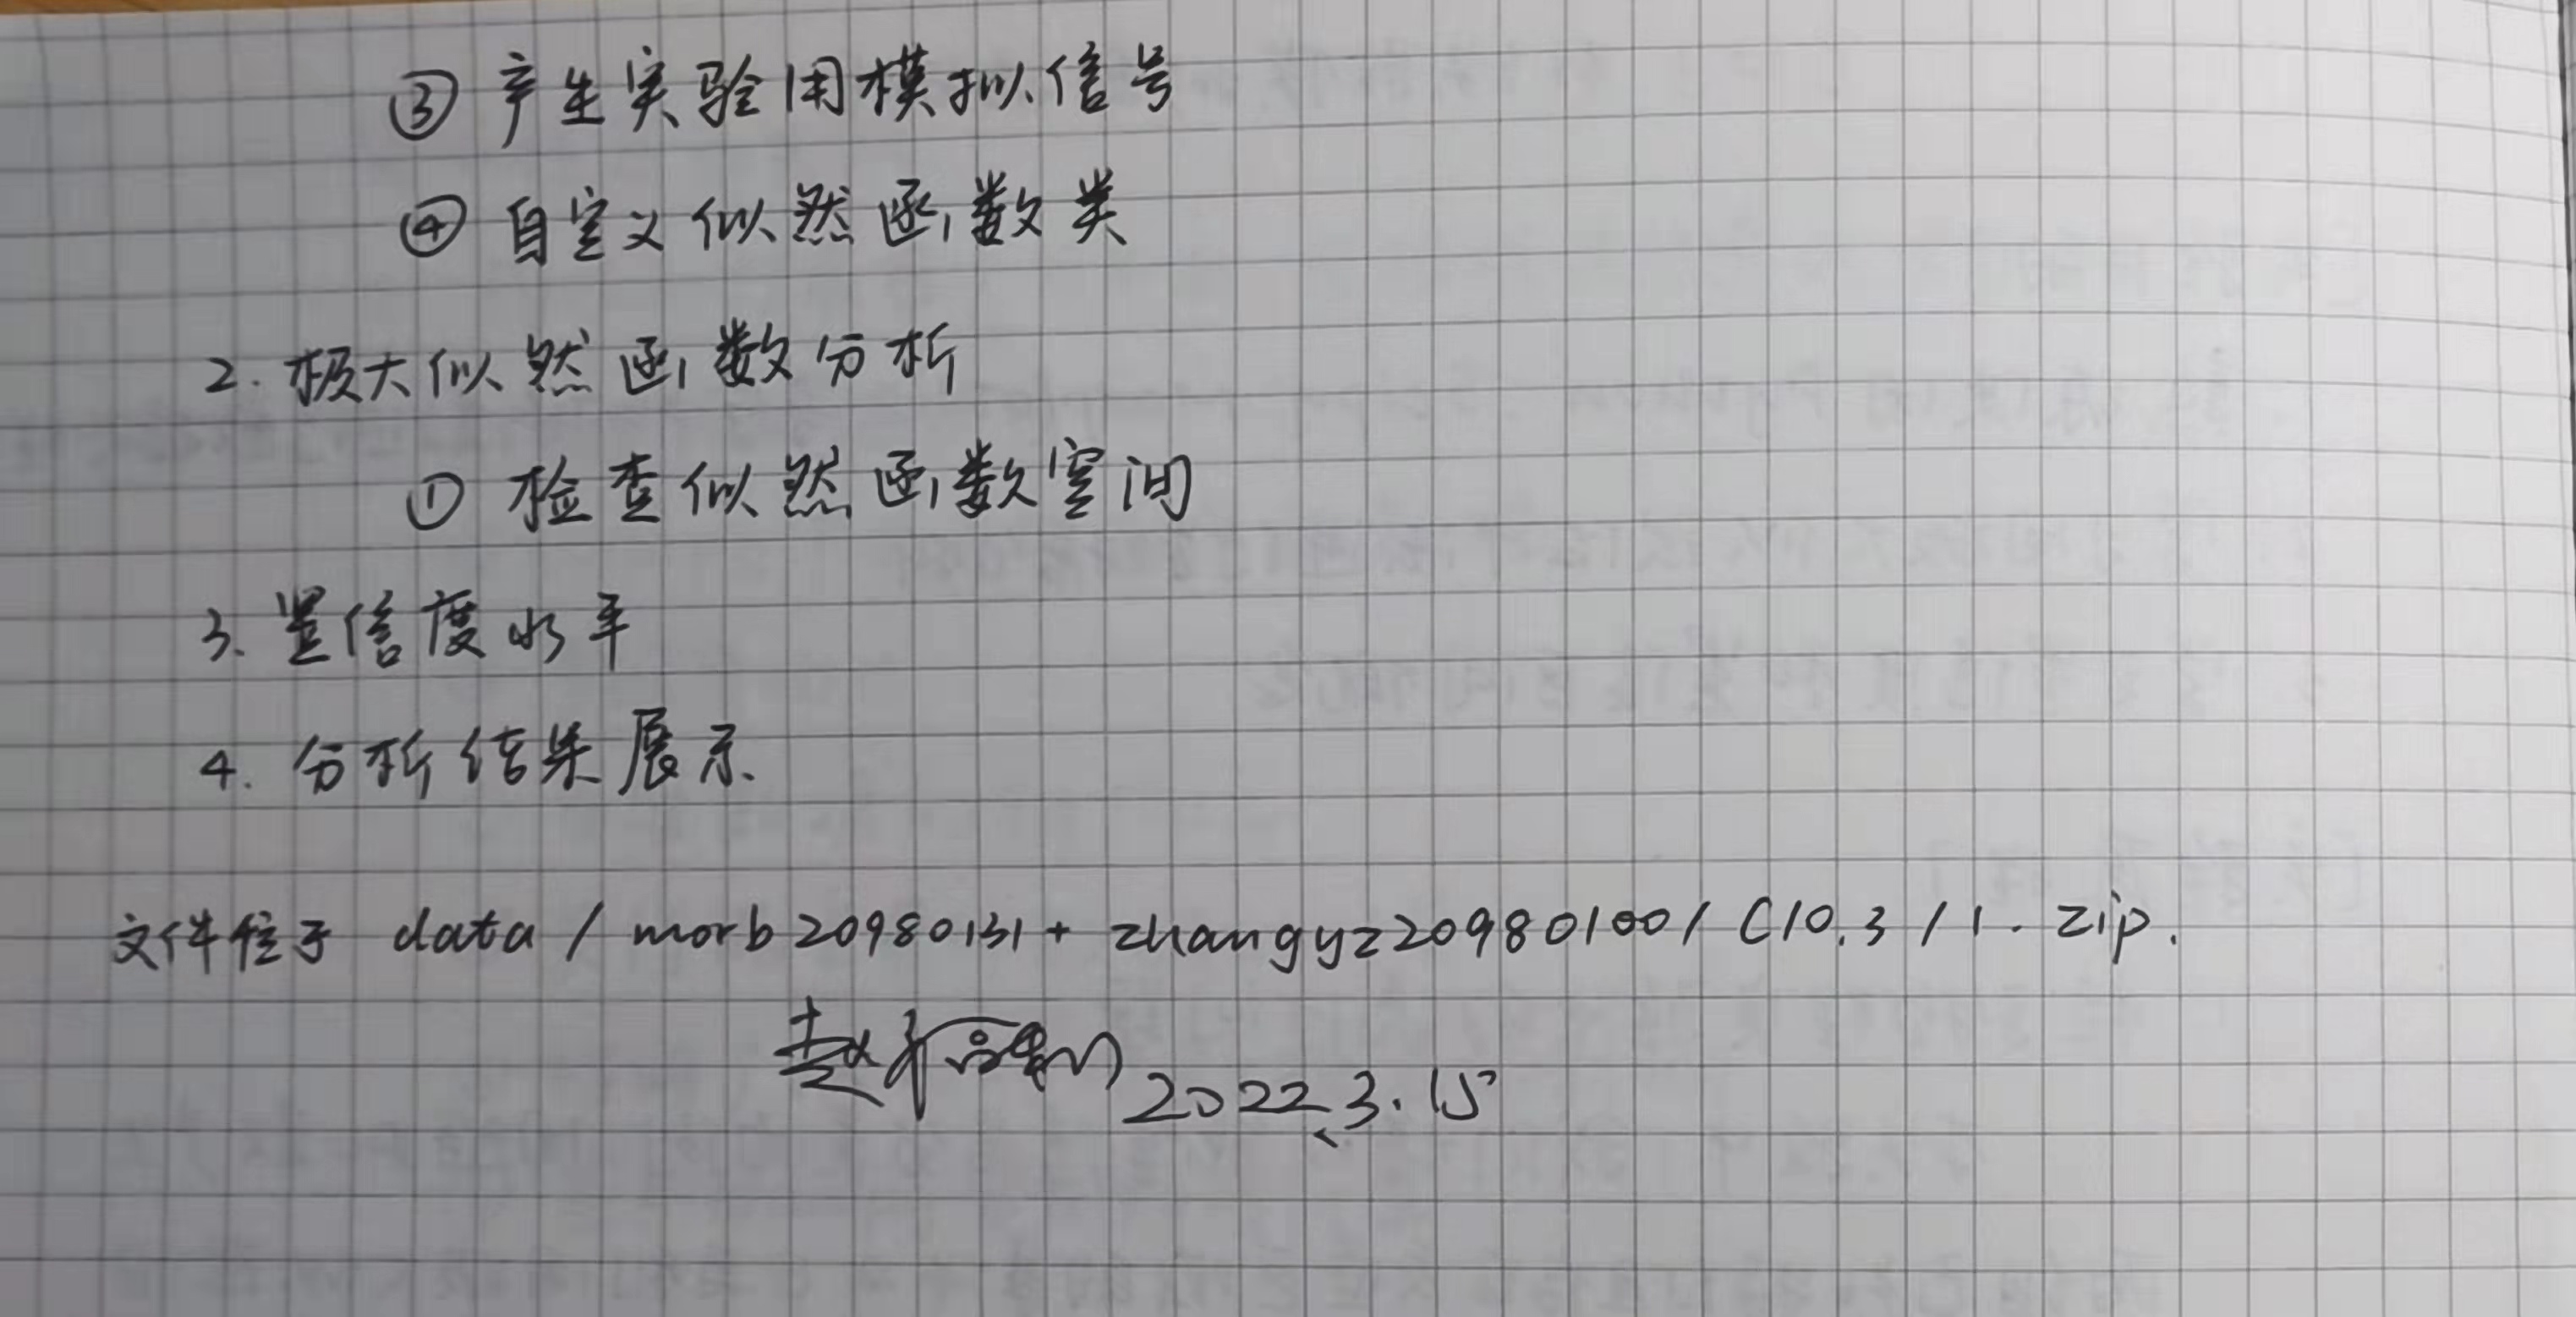 ③ 产生实验用模拟信号
④ 自定义似然函数类
2. 极大似然函数分析
① 检查似然函数空间
3. 置信度水平
4. 分析结果展示
文件位于 data / morb20980131 + zhangyz20980100 / C10.3 / 1.zip.
赵 2022.3.15